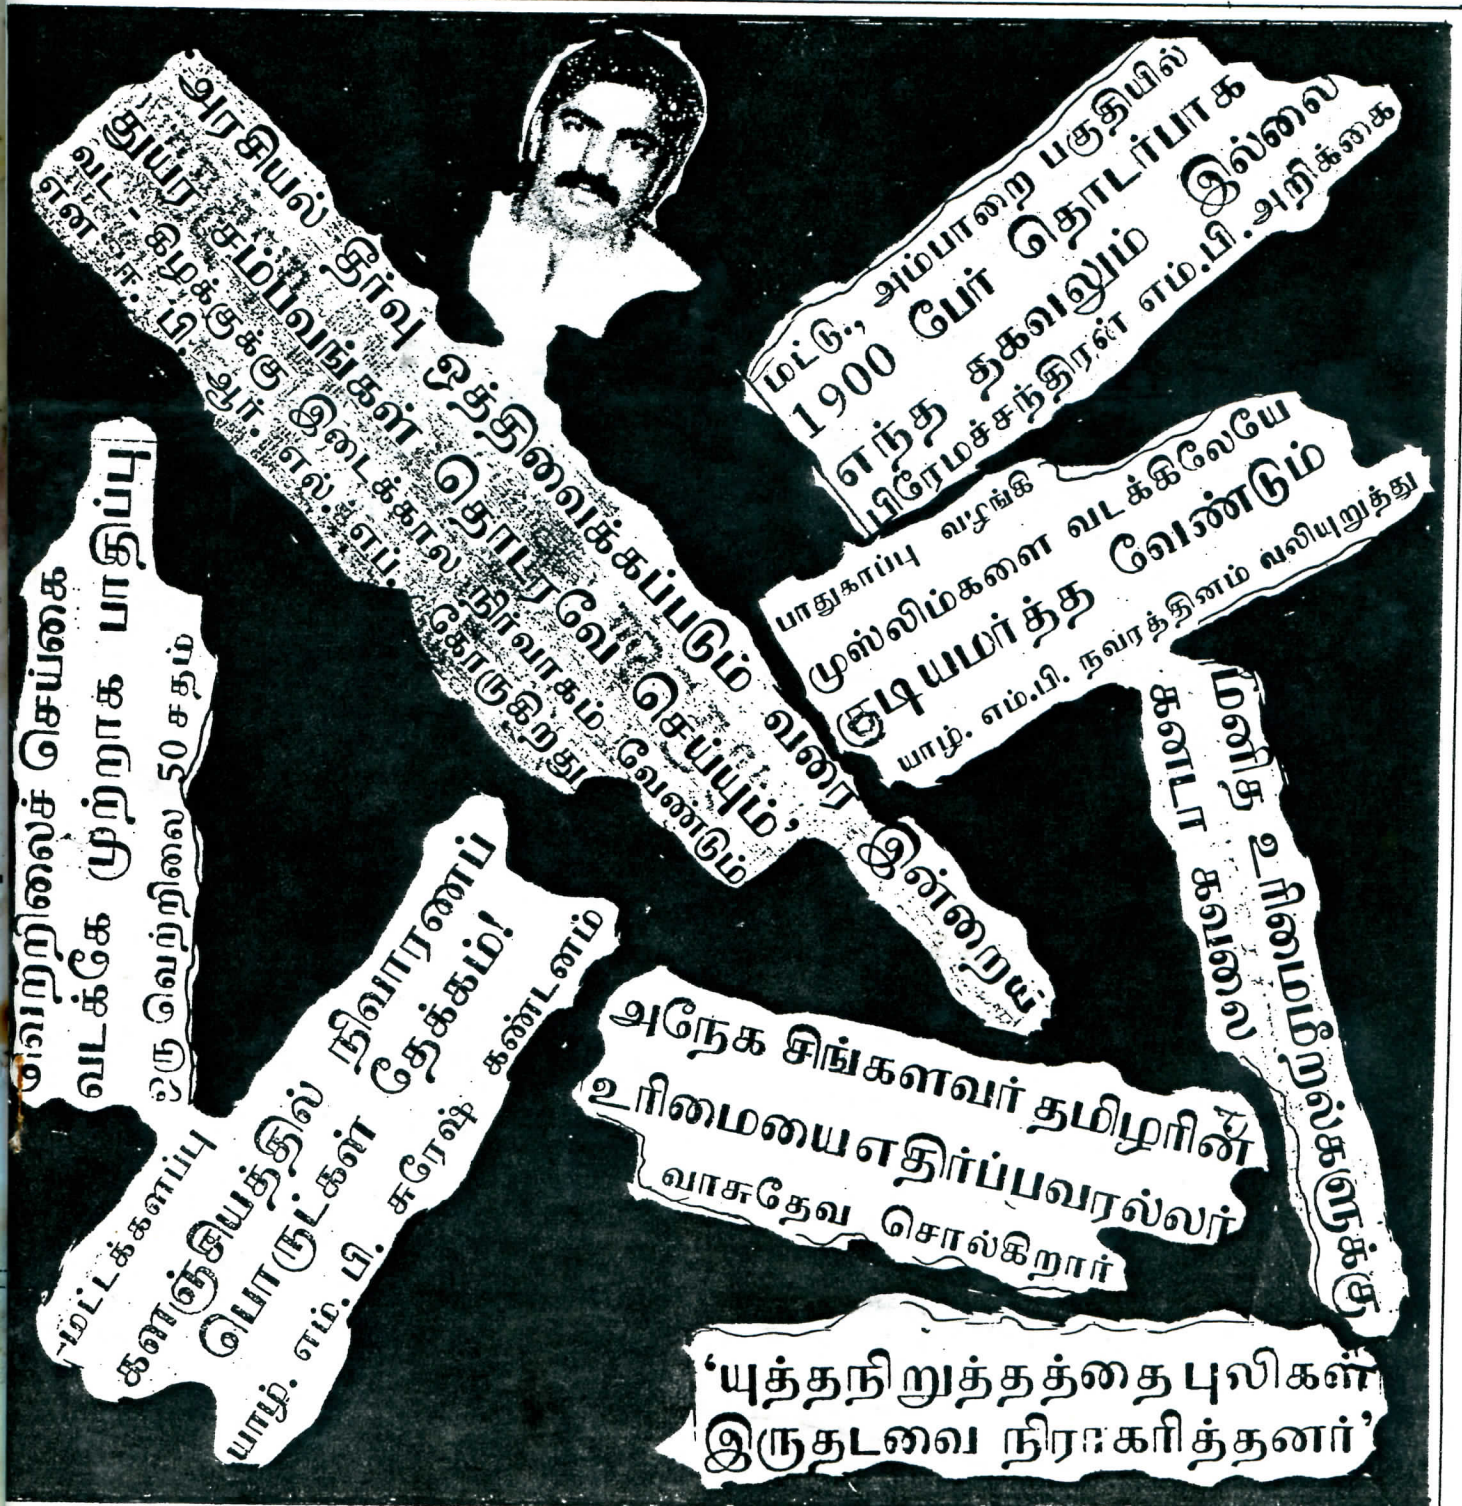 அரசியல் தீர்வு ஒத்திவைக்கப்படும் வரை இன்றைய
துயர சம்பவங்கள் தொடரவே செய்யும்'
வட-கிழக்குக்கு இடைக்கால நிர்வாகம் வேண்டும்
என ஈ. பி. ஆர். எல். எப். கோருகிறது
மட்டு., அம்பாறை பகுதியில்
1900 பேர் தொடர்பாக
எந்த தகவலும் இல்லை
பிரேமச்சந்திரன் எம்.பி. அறிக்கை
பாதுகாப்பு வழங்கி
முஸ்லிம்களை வடக்கிலேயே
குடியமர்த்த வேண்டும்
யாழ். எம்.பி. நவரத்தினம் வலியுறுத்து
மனித உரிமைமீறல்களுக்கு
கனடா கவலை
வெற்றிலைச் செய்கை
வடக்கே முற்றாக பாதிப்பு
ஒரு வெற்றிலை 50 சதம்
மட்டக்களப்பு
களஞ்சியத்தில் நிவாரணப்
பொருட்கள் தேக்கம்!
யாழ். எம். பி. சுரேஷ் கண்டனம்
அநேக சிங்களவர் தமிழரின்
உரிமையை எதிர்ப்பவரல்லர்
வாசுதேவ சொல்கிறார்
‘யுத்தநிறுத்தத்தை புலிகள்
இருதடவை நிராகரித்தனர்’